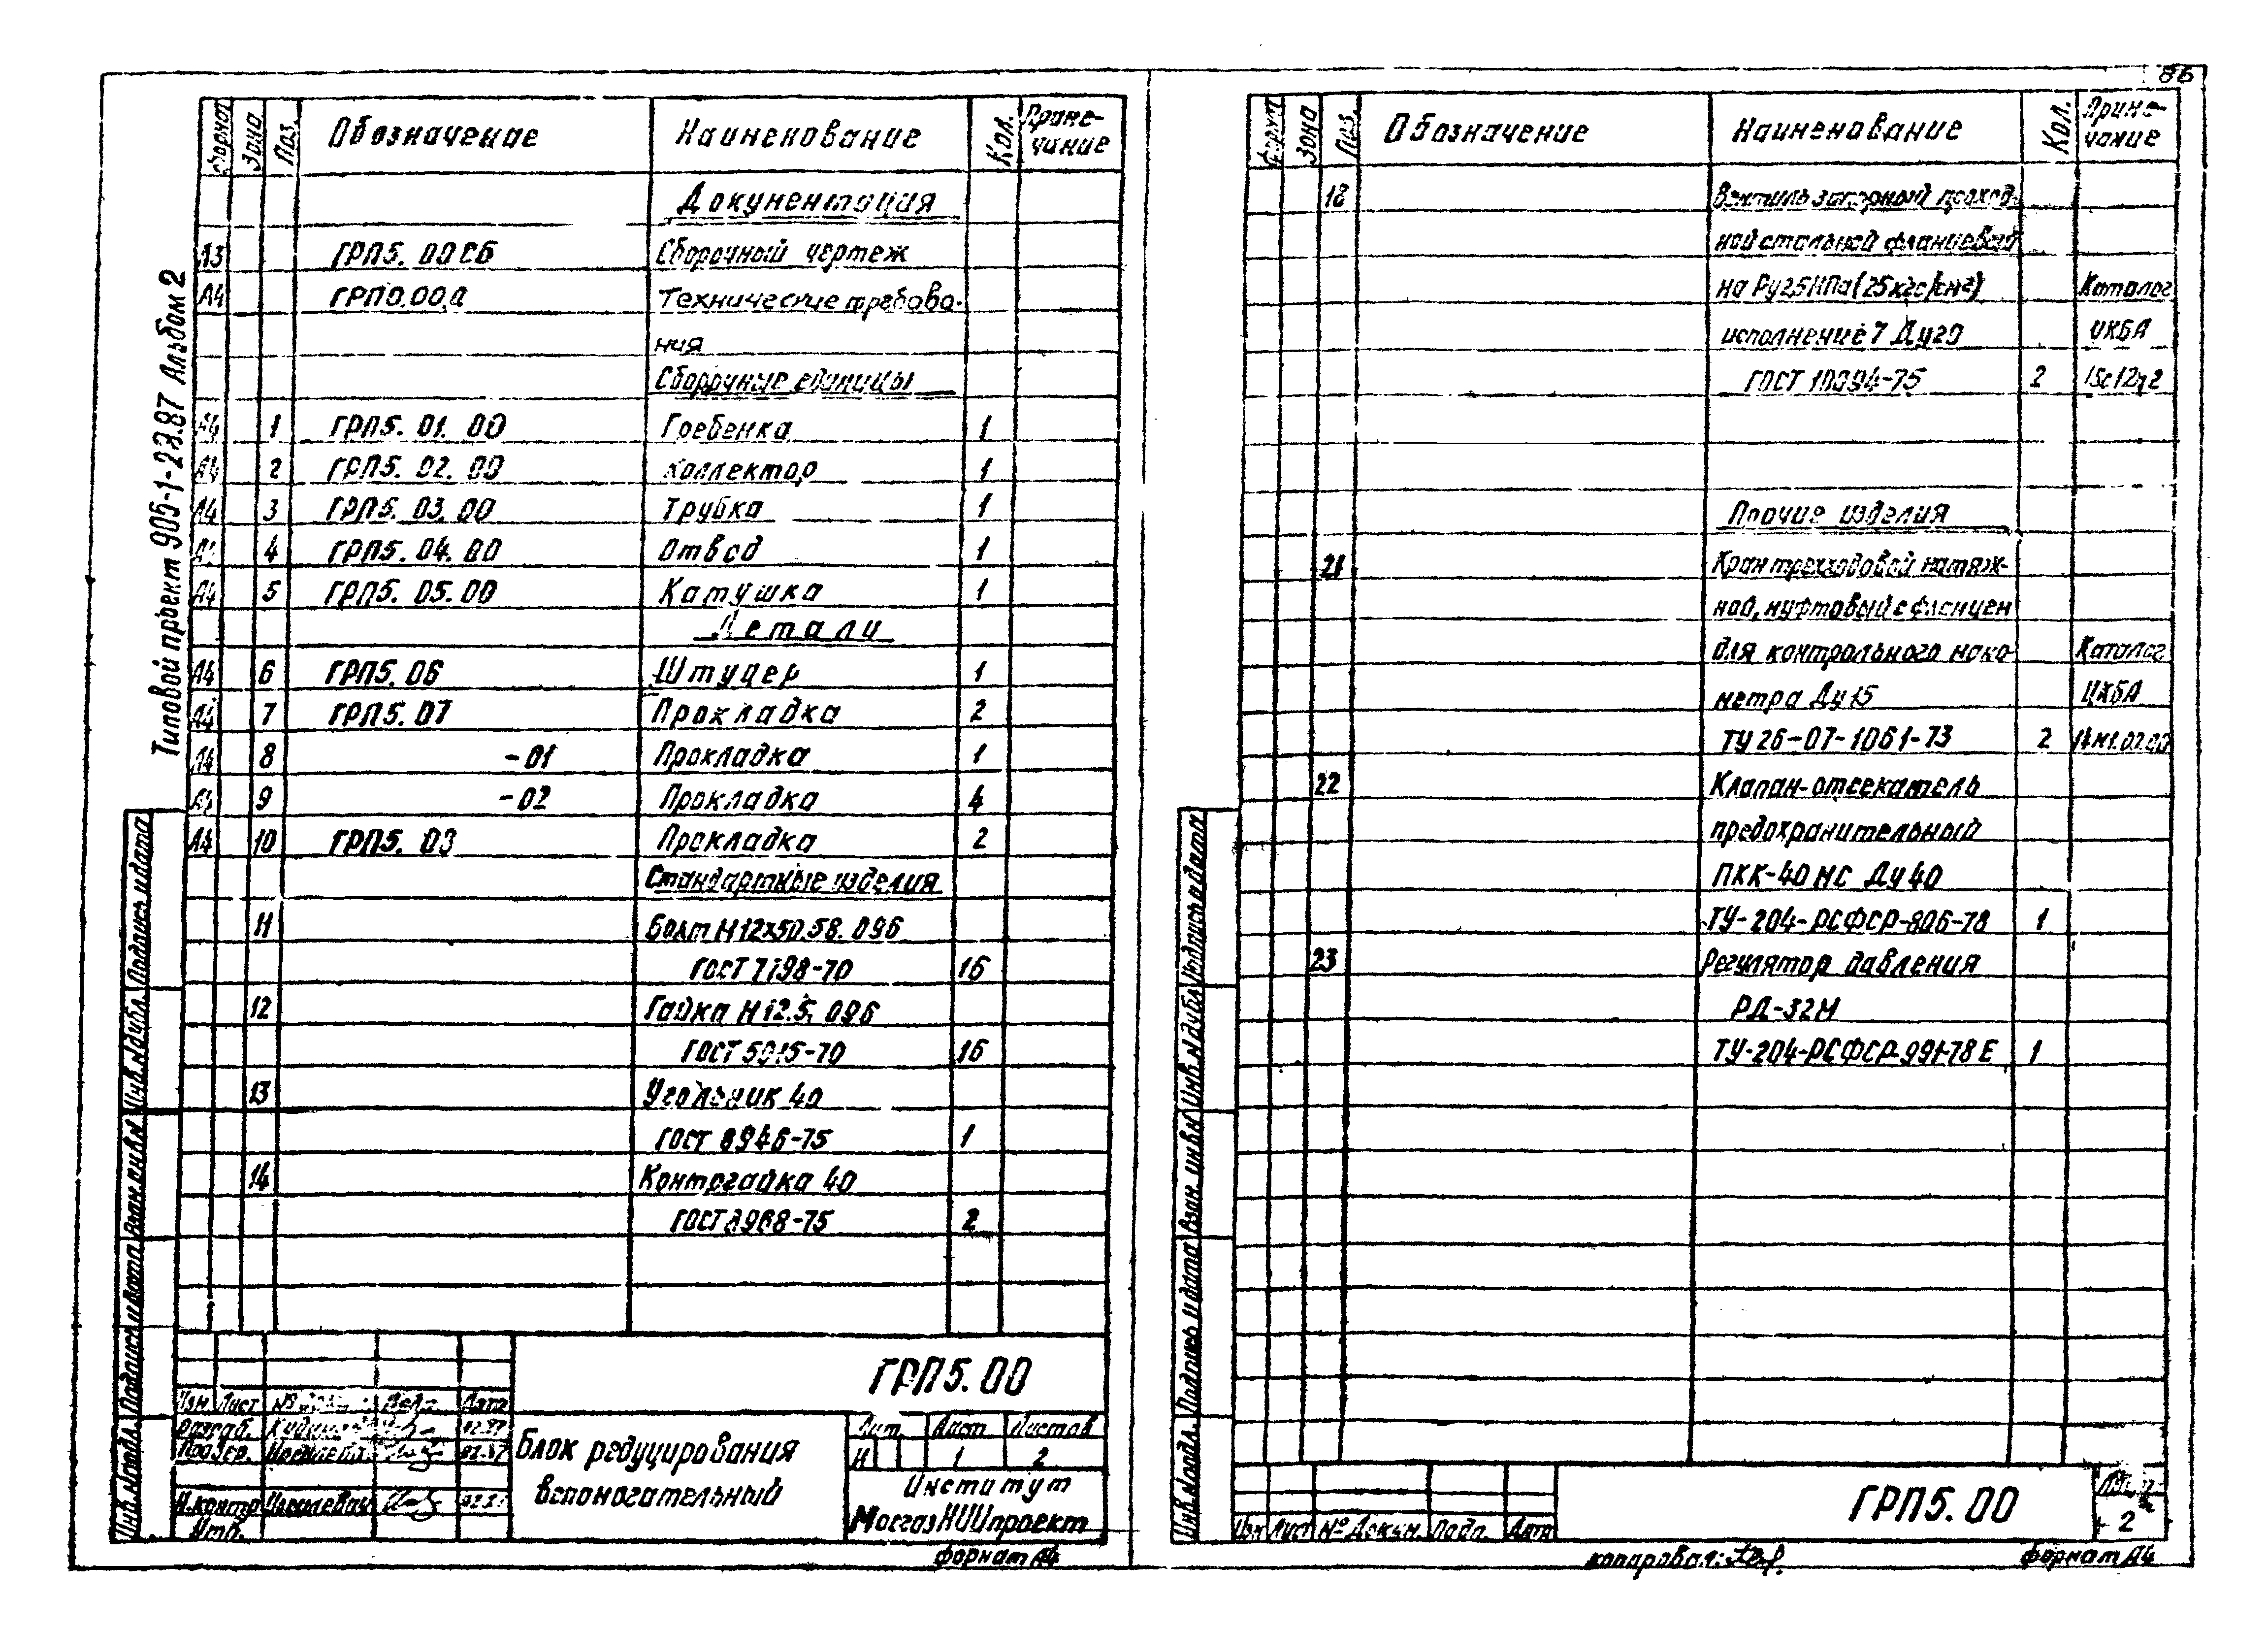 86
Типовой проект 905-1-27.87 Альбом 2
Формат Зона Поз. Обозначение Наименование Кол. Приме-
чание
Документация
А3 ГРП5.00СБ Сборочный чертеж
А4 ГРП0.00.Д Технические требова-
ния
Сборочные единицы
А4 1 ГРП5.01.00 Гребенка 1
А4 2 ГРП5.02.00 Коллектор 1
А4 3 ГРП5.03.00 Трубка 1
А4 4 ГРП5.04.00 Отвод 1
А4 5 ГРП5.05.00 Катушка 1
Детали
А4 6 ГРП5.06 Штуцер 1
А4 7 ГРП5.07 Прокладка 2
А4 8 -01 Прокладка 1
А4 9 -02 Прокладка 4
А4 10 ГРП5.03 Прокладка 2
Стандартные изделия
11 Болт М12х50.58.096
ГОСТ 7798-70 16
12 Гайка М12.5.096
ГОСТ 5915-70 16
13 Угольник 40
ГОСТ 8946-75 1
14 Контргайка 40
ГОСТ 8968-75 2
Инв. N подл. Подпись и дата Взам. инв. N Инв. N дубл. Подпись и дата
Изм Лист № докум. Подп. Дата
Разраб. 02.87
Провер. 02.87
Н.контр
Утв.
ГРП5.00
Блок редуцирования
вспомогательный
Лит. Лист Листов
И 1 2
Институт
МосгазНИИпроект
формат А4
Формат Зона Поз. Обозначение Наименование Кол. Приме-
чание
18 Вентиль запорный проход-
ной стальной фланцевый
на Ру2,5МПа(25кгс/см²) Каталог
исполнение 7 Ду20 ЦКБА
ГОСТ 10094-75 2 15с12п2
Прочие изделия
21 Кран трехходовой натяж-
ной, муфтовый с фланцем
для контрольного мано-
метра Ду15
Каталог
ЦКБА
ТУ 26-07-1061-73 2 14М1.02.00
22 Клапан-отсекатель
предохранительный
ПКК-40МС Ду40
ТУ-204-РСФСР-806-78 1
23 Регулятор давления
РД-32М
ТУ-204-РСФСР-991-78Е 1
Инв. N подл. Подпись и дата Взам. инв. N Инв. N дубл. Подпись и дата
Изм Лист № Докум. Подп. Дата
ГРП5.00
Лист
2
копировал:
формат А4